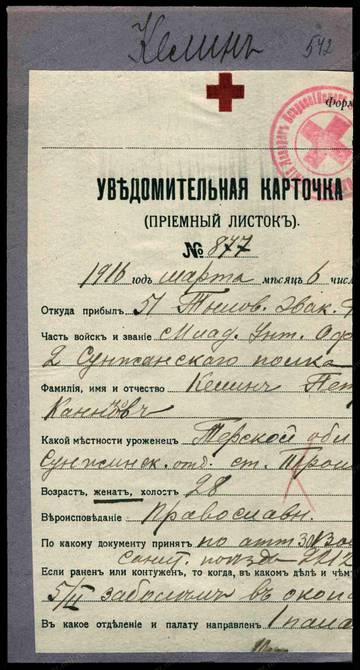 Келинъ 542
Форм
УВѢДОМИТЕЛЬНАЯ КАРТОЧКА
(ПРІЕМНЫЙ ЛИСТОКЪ).
№ 877
1916 годъ марта мѣсяцъ 6 числ
Откуда прибылъ 51 Тылов. Эвак.
Часть войскъ и званіе Млад. Унт. Оф
2 Сунжанскаго полка
Фамилія, имя и отчество Келинъ Пет
Какой мѣстности уроженецъ Терской обл
Сунжинск. отд. ст. Трои
Возрастъ, женатъ, холостъ 28
Вѣроисповѣданіе Православн.
По какому документу принятъ по
санит. поѣзда
Если раненъ или контуженъ, то когда, въ какомъ дѣлѣ и чѣм
5/II заболѣлъ въ окоп
Въ какое отдѣленіе и палату направленъ 1 пала